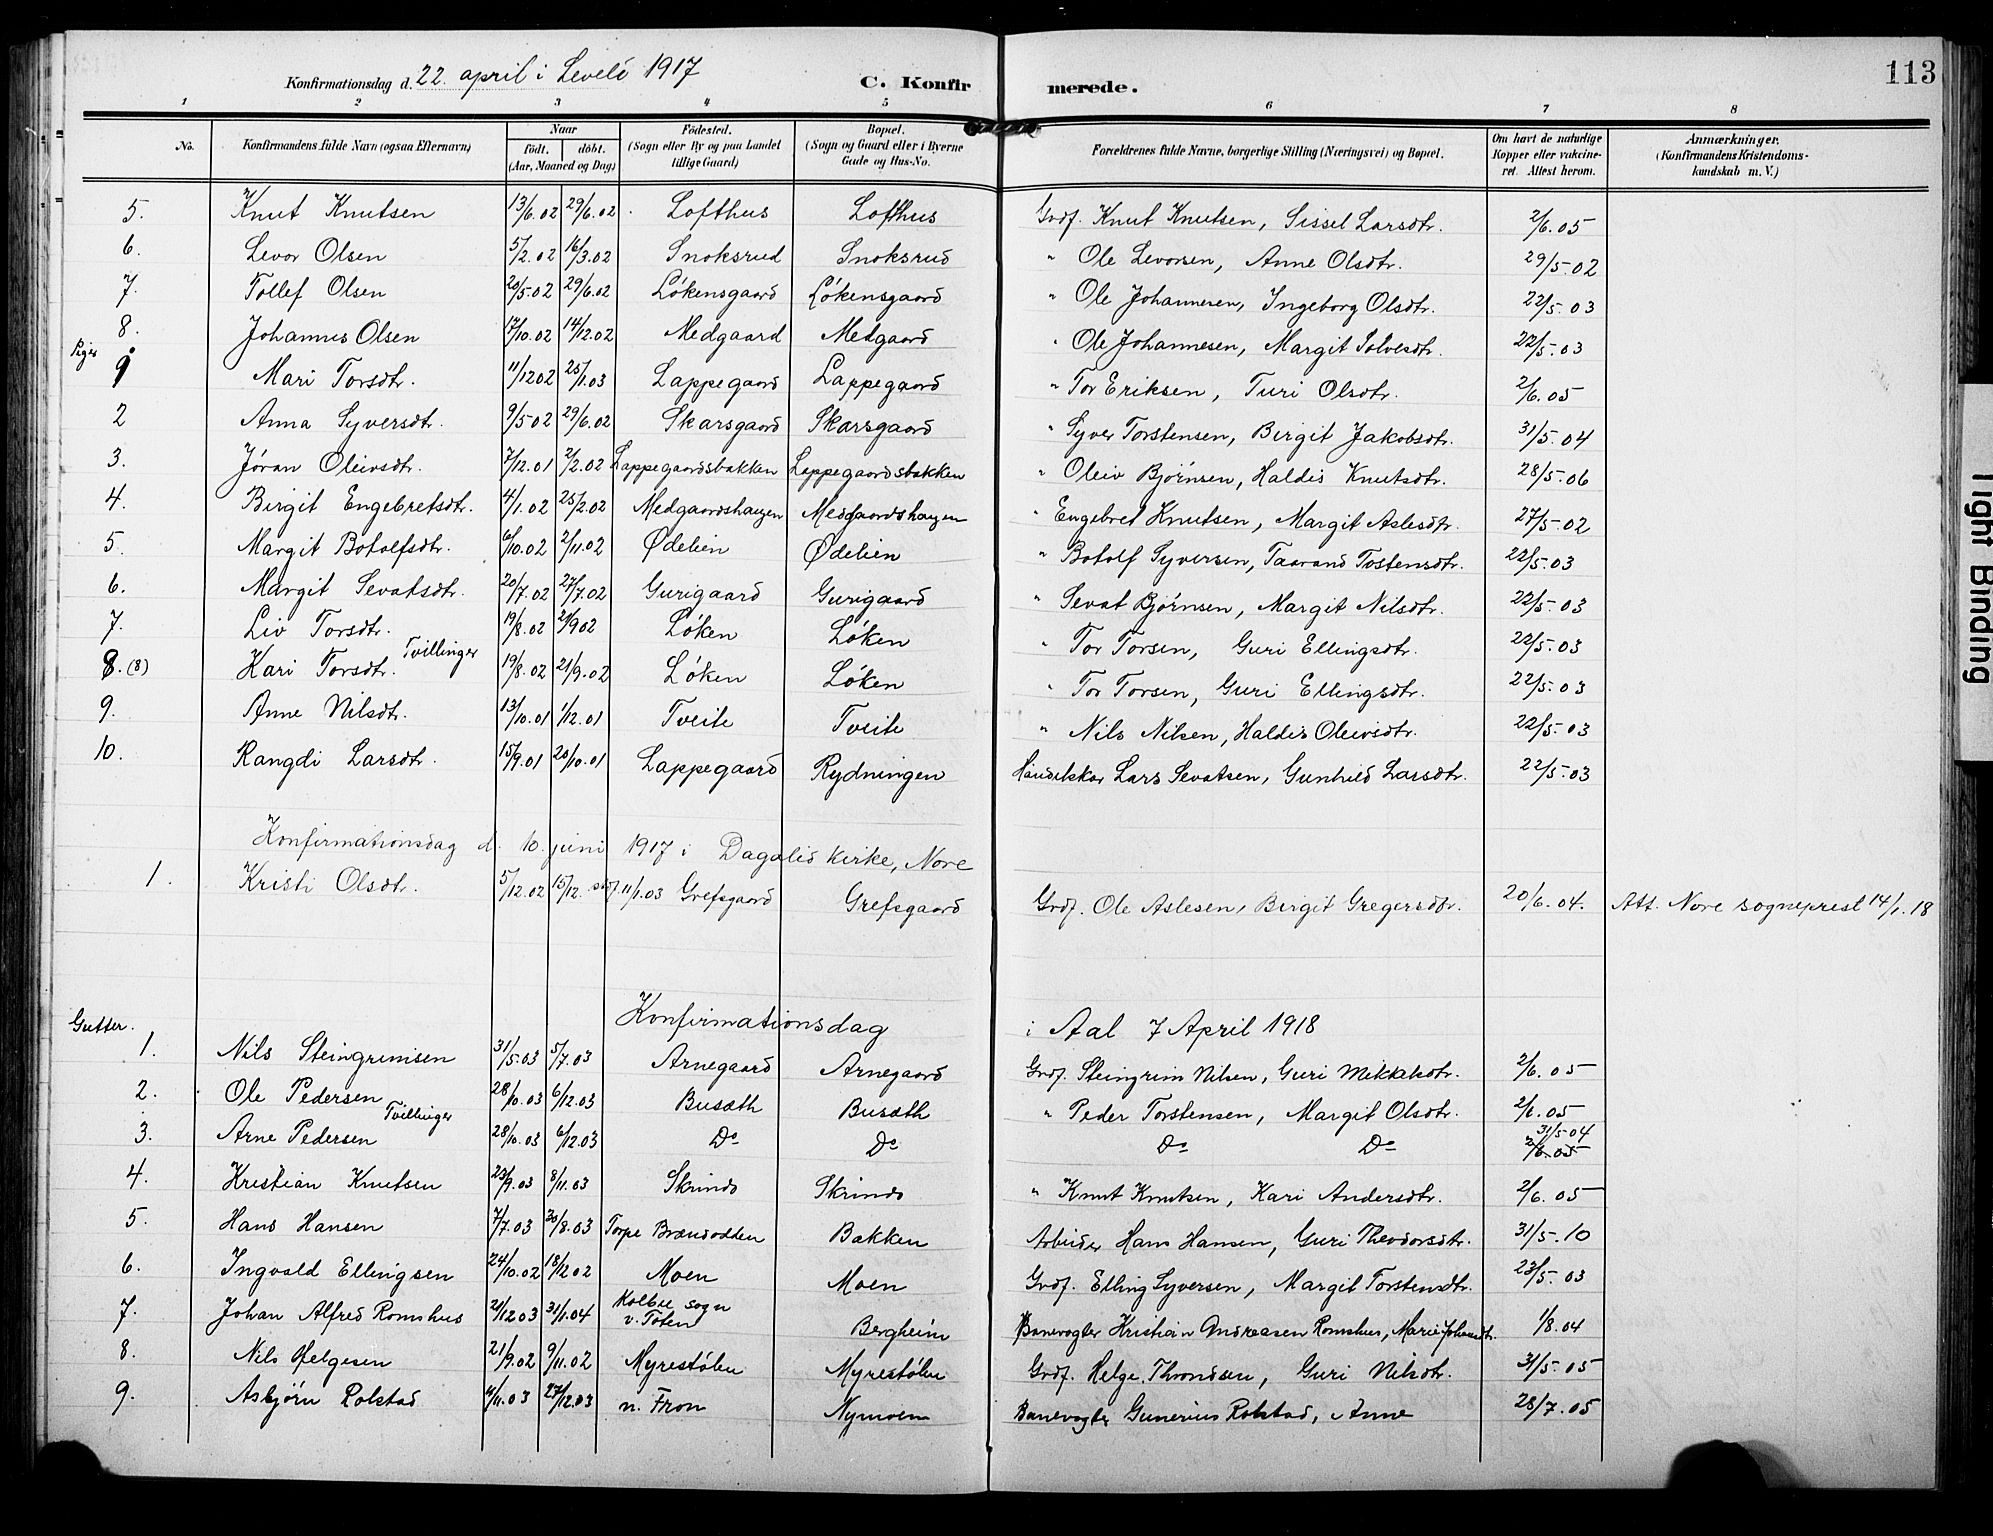 113
Konfirmationsdag d. 22. april i 1917 C. Konfirmerede.
1 2 3 4 5 6 7 8
No. Konfirmandens fulde Navn (ogsaa Efternavn) Naar født. døbt. (Aar, Maaned og Dag) Fødested. (Sogn eller By og paa Landet tillige Gaard) Bopæl. (Sogn og Gaard eller i Byerne Gade og Hus-No. Forældrenes fulde Navne, borgerlige Stilling (Næringsvei) og Bopæl. Om havt de naturlige Kopper eller vakcineret. Attest herom. Anmærkninger. (Konfirmandens Kristendomskundskab m. V.)
5. Knut Knutsen 13/6.02 29/6.02 Lofthus Lofthus Grdf. Knut Knutsen, Sissel Larsdtr. 2/6.05
6. Levor Olsen 5/2.02 16/3.02 Snoksrud Snoksrud " Ole Levorsen, Anne Olsdtr. 29/5.02
7. Tollef Olsen 20/5.02 29/6.02 Løkensgaard Løkensgaard " Ole Johannesen, Ingeborg Olsdtr. 22/5.03
8. Johannes Olsen 17/10.02 14/12.02 Medgaard Medgaard " Ole Johannesen, Margit Solvesdtr. 22/5.03
Piger
1 Mari Torsdtr. 11/12 02 25/1.03 Lappegaard Lappegaard " Tor Eriksen, Turi Olsdtr. 2/6.05
2 Anna Syversdtr. 9/5 02 29/6.02 Skarsgaard Skarsgaard " Syver Torstensen, Birgit Jakobsdtr. 31/5.04
3. Jøran Oleivsdtr. 7/12.01 2/2.02 Lappegaardsbakken Lappegaardsbakken " Oleiv Bjørnsen, Haldis Knutsdtr. 28/5.06
4. Birgit Engebretsdtr. 4/1.02 25/2.02 Medgaardshaugen Medgaardshaugen " Engebret Knutsen, Margit Aslesdtr. 27/5-02
5. Margit Botolfsdtr. 6/10.02 2/11.02 Ødelien Ødelien " Botolf Syversen, Taarand Tostensdtr. 22/5.03
6. Margit Sevatsdtr. 20/7.02 27/7.02 Gurigaard Gurigaard " Sevat Bjørnsen, Margit Nilsdtr. 22/5.03
7. Liv Torsdtr. 19/8.02 21/9 02 Løken Løken " Tor Torsen, Guri Ellingsdtr. 22/5.03
Tvillinger
8. (8) Kari Torsdtr. 19/8.02 21/9.02 Løken Løken " Tor Torsen, Guri Ellingsdtr. 22/5.03
9. Anne Nilsdtr. 13/10.01 1/12.01 Tveite Tveite " Nils Nilsen, Haldis Oleivsdtr. 22/5.03
10. Rangdi Larsdtr. 15/9.01 20/10.01 Lappegaard Rydningen Handelskar Lars Sevatsen, Gunhild Larsdtr. 22/5.03
Konfirmationsdag d. 10. juni 1917 i Dagalid kirke, Nore
1. Kristi Olsdtr. 5/12.02 15/12. 11/1.03 Grefsgaard Grefsgaard Grdf. Ole Aslesen, Birgit Gregersdtr. 20/6.04. Att. Nore sogneprest 14/1.18
Konfirmationsdag i Aal 7 April 1918
Gutter.
1. Nils Steingrimsen 31/5.03 5/7.03 Arnegaard Arnegaard Grdf. Steingrim Nilsen, Guri Mikkelsdtr. 2/6.05
2. Ole Pedersen 28/10.03 6/12.03 Busæth Busæth " Peder Torstensen, Margit Olsdtr. 2/6.05
Tvillinger
3. Arne Pedersen 28/10.03 6/12.03 Do Do Do Do 31/5-04 2/6.05
4. Kristian Knutsen 23/9.03 8/11.03 Skrindo Skrindo " Knut Knutsen, Kari Andersdtr. 2/6.05
5. Hans Hansen 7/7.03 30/8.03 Torpe Brændodden Bakken Arbeider Hans Hansen, Guri Theodorsdtr. 31/5-10
6. Ingvald Ellingsen 24/10.02 18/12 02 Moen Moen Grdf. Elling Syversen, Margit Torstensdtr. 23/5.03
7. Johan Alfred Romshus 21/12 03 31/1.04 Kolbu sogn v. Toten Bergheim Banevogter Kristian Andreasen Romshus, Marie Johansdtr. 1/8.04
8. Nils Helgesen 21/9.02 9/11.02 Myrestølen Myrestølen Grdf. Helge Throndsen, Guri Nilsdtr. 31/5-05
9. Asbjørn Rolstad 4/11.03 27/12.03 n. Fron Nymoen Banevogter Gunerius Rolstad, Anne 28/7.05
Tight Binding